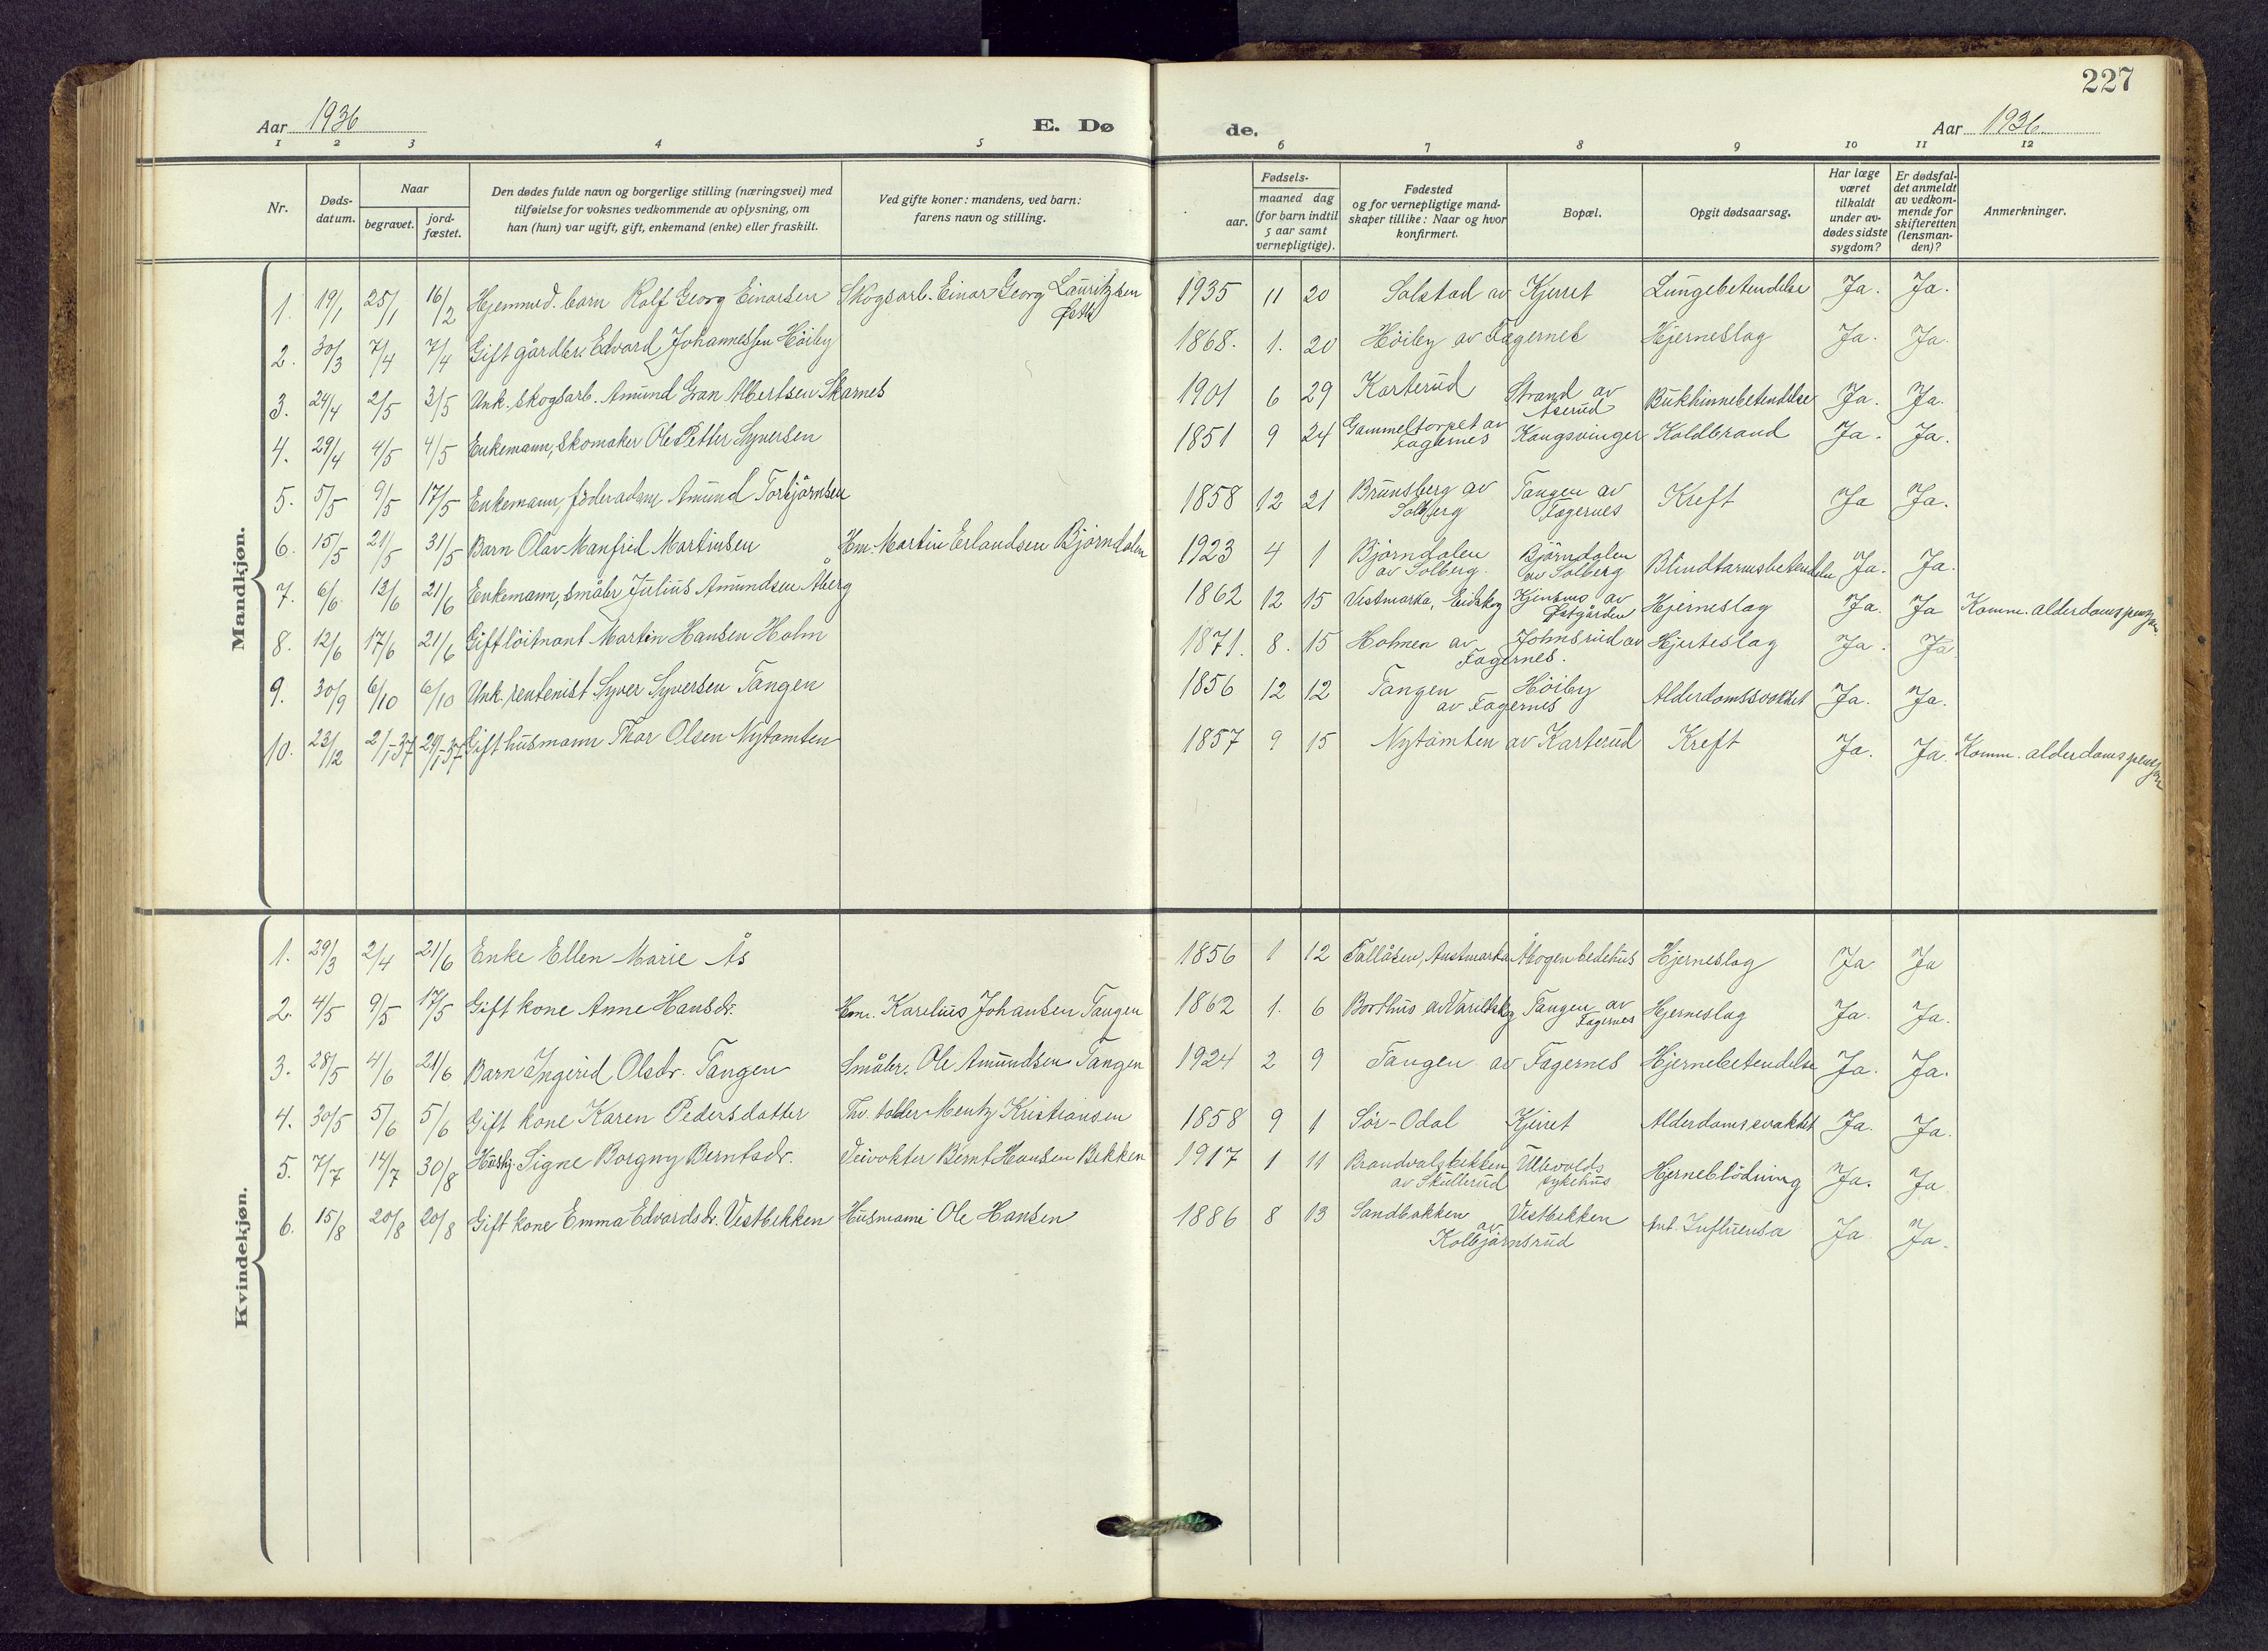 227
Aar 1936 E. Dø de. Aar 1936
1 2 3 4 5 6 7 8 9 10 11 12
Nr.
Døds-
datum.
Naar
begravet.
jord-
fæstet.
Den dødes fulde navn og borgerlige stilling (næringsvei) med
tilføielse for voksnes vedkommende av oplysning, om
han (hun) var ugift, gift, enkemand (enke) eller fraskilt.
Ved gifte koner: mandens, ved barn:
farens navn og stilling.
Fødsels-
aar.
maaned dag
(for barn indtil
5 aar samt
vernepligtige).
Fødested
og for vernepligtige mand-
skaper tillike: Naar og hvor
konfirmert.
Bopæl.
Opgit dødsaarsag.
Har læge
været
tilkaldt
under av-
dødes sidste
sygdom?
Er dødsfal-
det anmeldt
av vedkom-
mende for
skifteretten
(lensman-
den)?
Anmerkninger.
Mandkjøn.
1. 19/1 25/1 16/2 Hjemmed. barn Rolf Georg Einarsen Skogsarb. Einar Georg Lauritzsen 1935 11 20 Solstad av Kjerret Lungebetendelse Ja. Ja.
2. 30/3 7/4 7/4 Gift gårdbr. Edvard Johannessen Höiby 1868. 1. 20 Höiby av Fagernes Hjerneslag Ja. Ja.
3. 24/4 2/5 3/5 Unk. skogsarb. Amund Gran Albertsen Skarnes 1901 6 29 Karterud Strand av Åserud Bukhinnebetendelse Ja. Ja.
4. 29/4 4/5 4/5 Enkemann, skomaker Ole Petter Syversen 1851 9 24 Gammeltorpet av Fagernes Kongsvinger Koldbrand Ja. Ja.
5. 5/5 9/5 17/5 Enkemann, föderådsm. Amund Torbjörnsen 1858 12 21 Brunsberg av Solberg Tangen av Fagernes Kreft Ja Ja.
6. 15/5 21/5 31/5 Barn Olav Manfrid Martinsen Hm. Martin Erlandsen Björndalen 1923 4 1 Björndalen av Solberg. Björndalen av Solberg Blindtarmsbetendelse Ja. Ja.
7. 6/6 13/6 21/6 Enkemann, småbr. Julius Amundsen Åberg 1862 12 15 Vestmarka, Eidskog Kjensmo av Östgården Hjerneslag Ja. Ja Komm. alderdomspensjon
8. 12/6 17/6 21/6 Gift löitnant Martin Hansen Holm 1871. 8. 15 Holmen av Fagernes. Johnsrud av Hjerteslag Ja. Ja.
9. 30/9 6/10 6/10 Unk. rentenist Syver Syversen Tangen 1856 12 12 Tangen av Fagernes Höiby Alderdomssvakhet Ja. Ja.
10. 23/12 2/1-37 24/1-37 Gift husmann Thor Olsen Nytomten 1857 9 15 Nytomten av Karterud Kreft Ja. Ja. Komm. alderdomspensjon
Kvindekjøn.
1. 29/3 2/4 21/6 Enke Ellen Marie Ås 1856 1 12 Fallåsen, Austmarka Åbogen bedehus Hjerneslag Ja Ja
2. 4/5 9/5 17/5 Gift kone Anne Hansdr. Hm. Karelius Johansen Tangen 1862 1. 6 Borthus av Varildskog Tangen av Fagernes Hjerneslag Ja. Ja.
3. 28/5 4/6 21/6 Barn Ingerid Olsdr. Tangen Småbr. Ole Amundsen Tangen 1924 2 9 Tangen av Fagernes Hjernebetendelse Ja. Ja.
4. 30/5 5/6 5/6 Gift kone Karen Pedersdatter Fhv. tolder Mentz Kristiansen 1858 9 1 Sör-Odal Kjerret Alderdomssvakhet Ja. Ja.
5. 7/7 14/7 30/8 Hushj. Signe Borgny Berntsdr. Veivokter Bernt Hansen Bekken 1917 1 11 Brandvalsbekken av Skullerud Ullevolds sykehus Hjerneblödning Ja. Ja.
6. 15/8 20/8 20/8 Gift kone Emma Edvardsdr. Vestbekken Husmann Ole Hansen 1886 8 13 Sandbakken av Kolbjörnsrud Vestbekken Ant. Influensa Ja Ja.